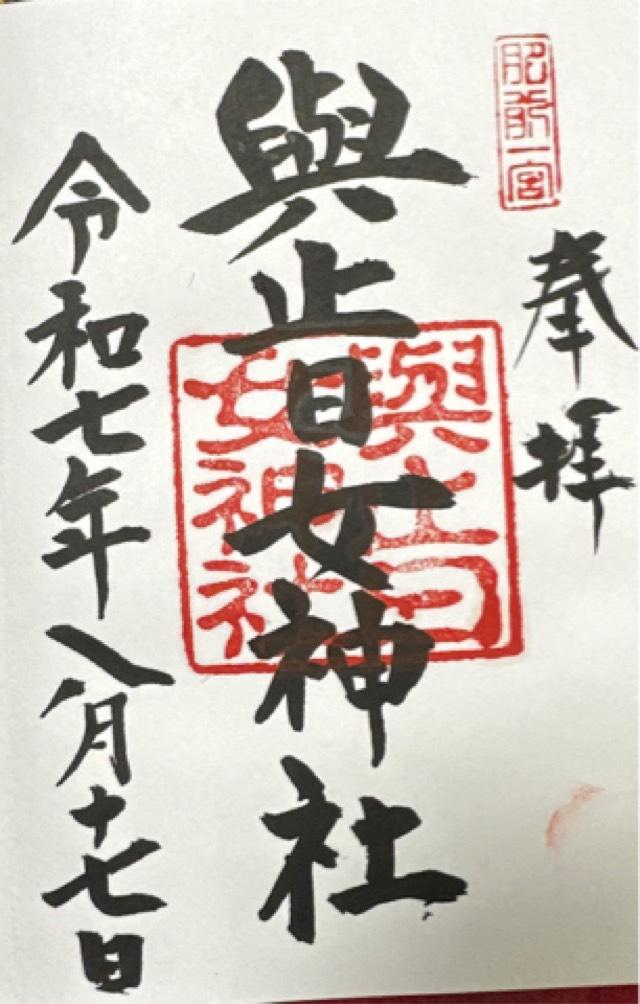 肥前一宮
奉拝
與止日女神社
與止日女神社
令和七年八月十七日